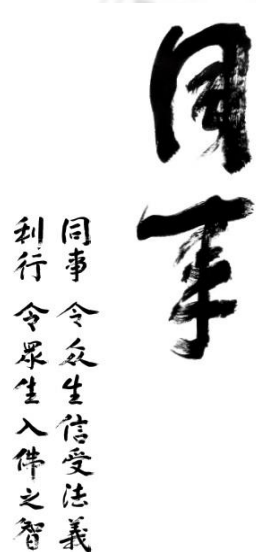 同事
同事 令众生信受法義
利行 令眾生入佛之智